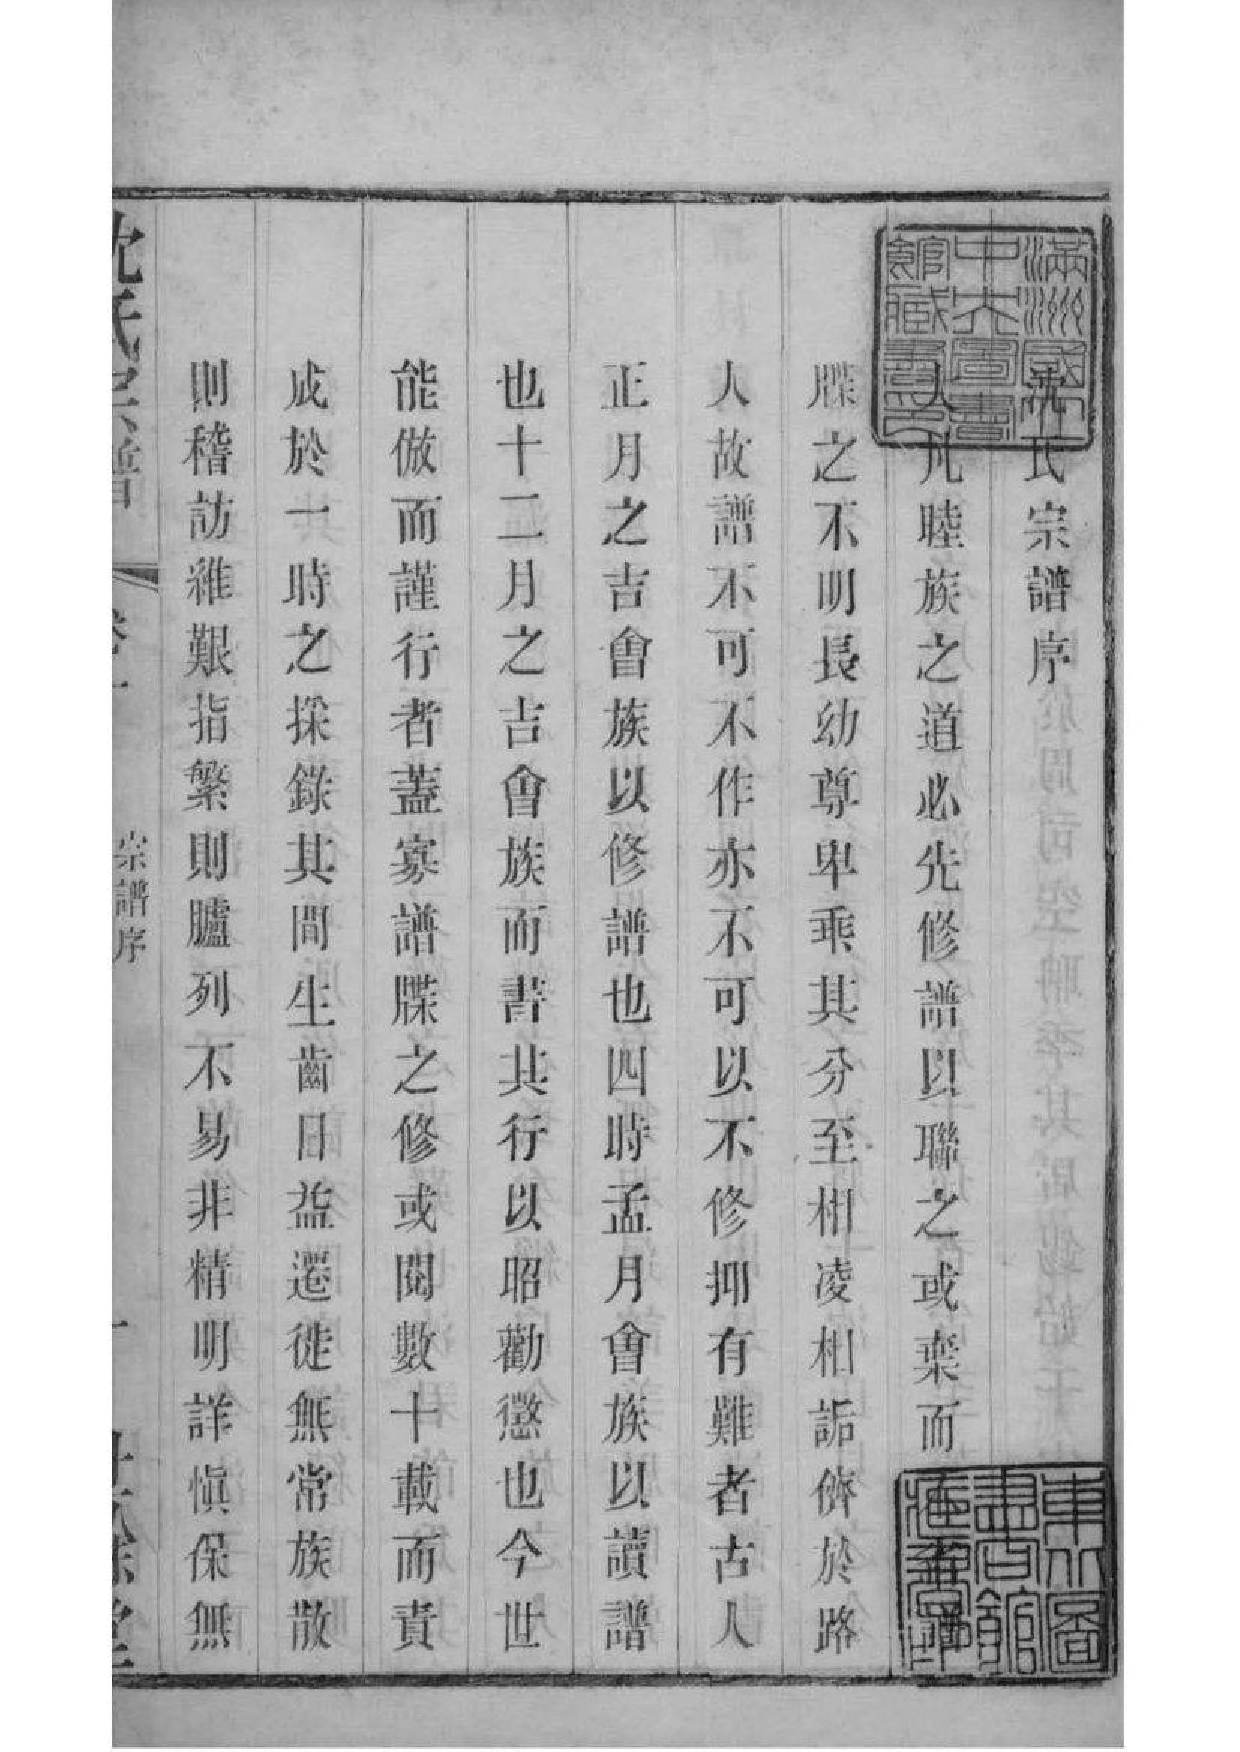 沈氏宗譜序
人凡睦族之道必先修譜以聯之或棄而
牒之不明長幼尊卑乖其分至相凌相詬儕於路
人故譜不可不作亦不可以不修抑有難者古人
正月之吉會族以修譜也四時孟月會族以讀譜
也十二月之吉會族而書其行以昭勸懲也今世
能倣而謹行者蓋寡譜牒之修或閱數十載而責
成於一時之採錄其間生齒日益遷徙無常族散
則稽訪維艱指繁則臚列不易非精明詳愼保無
沈氏宗譜
卷一
宗譜序
一
滿洲國
中央圖書
館籌備處
東北圖
書館